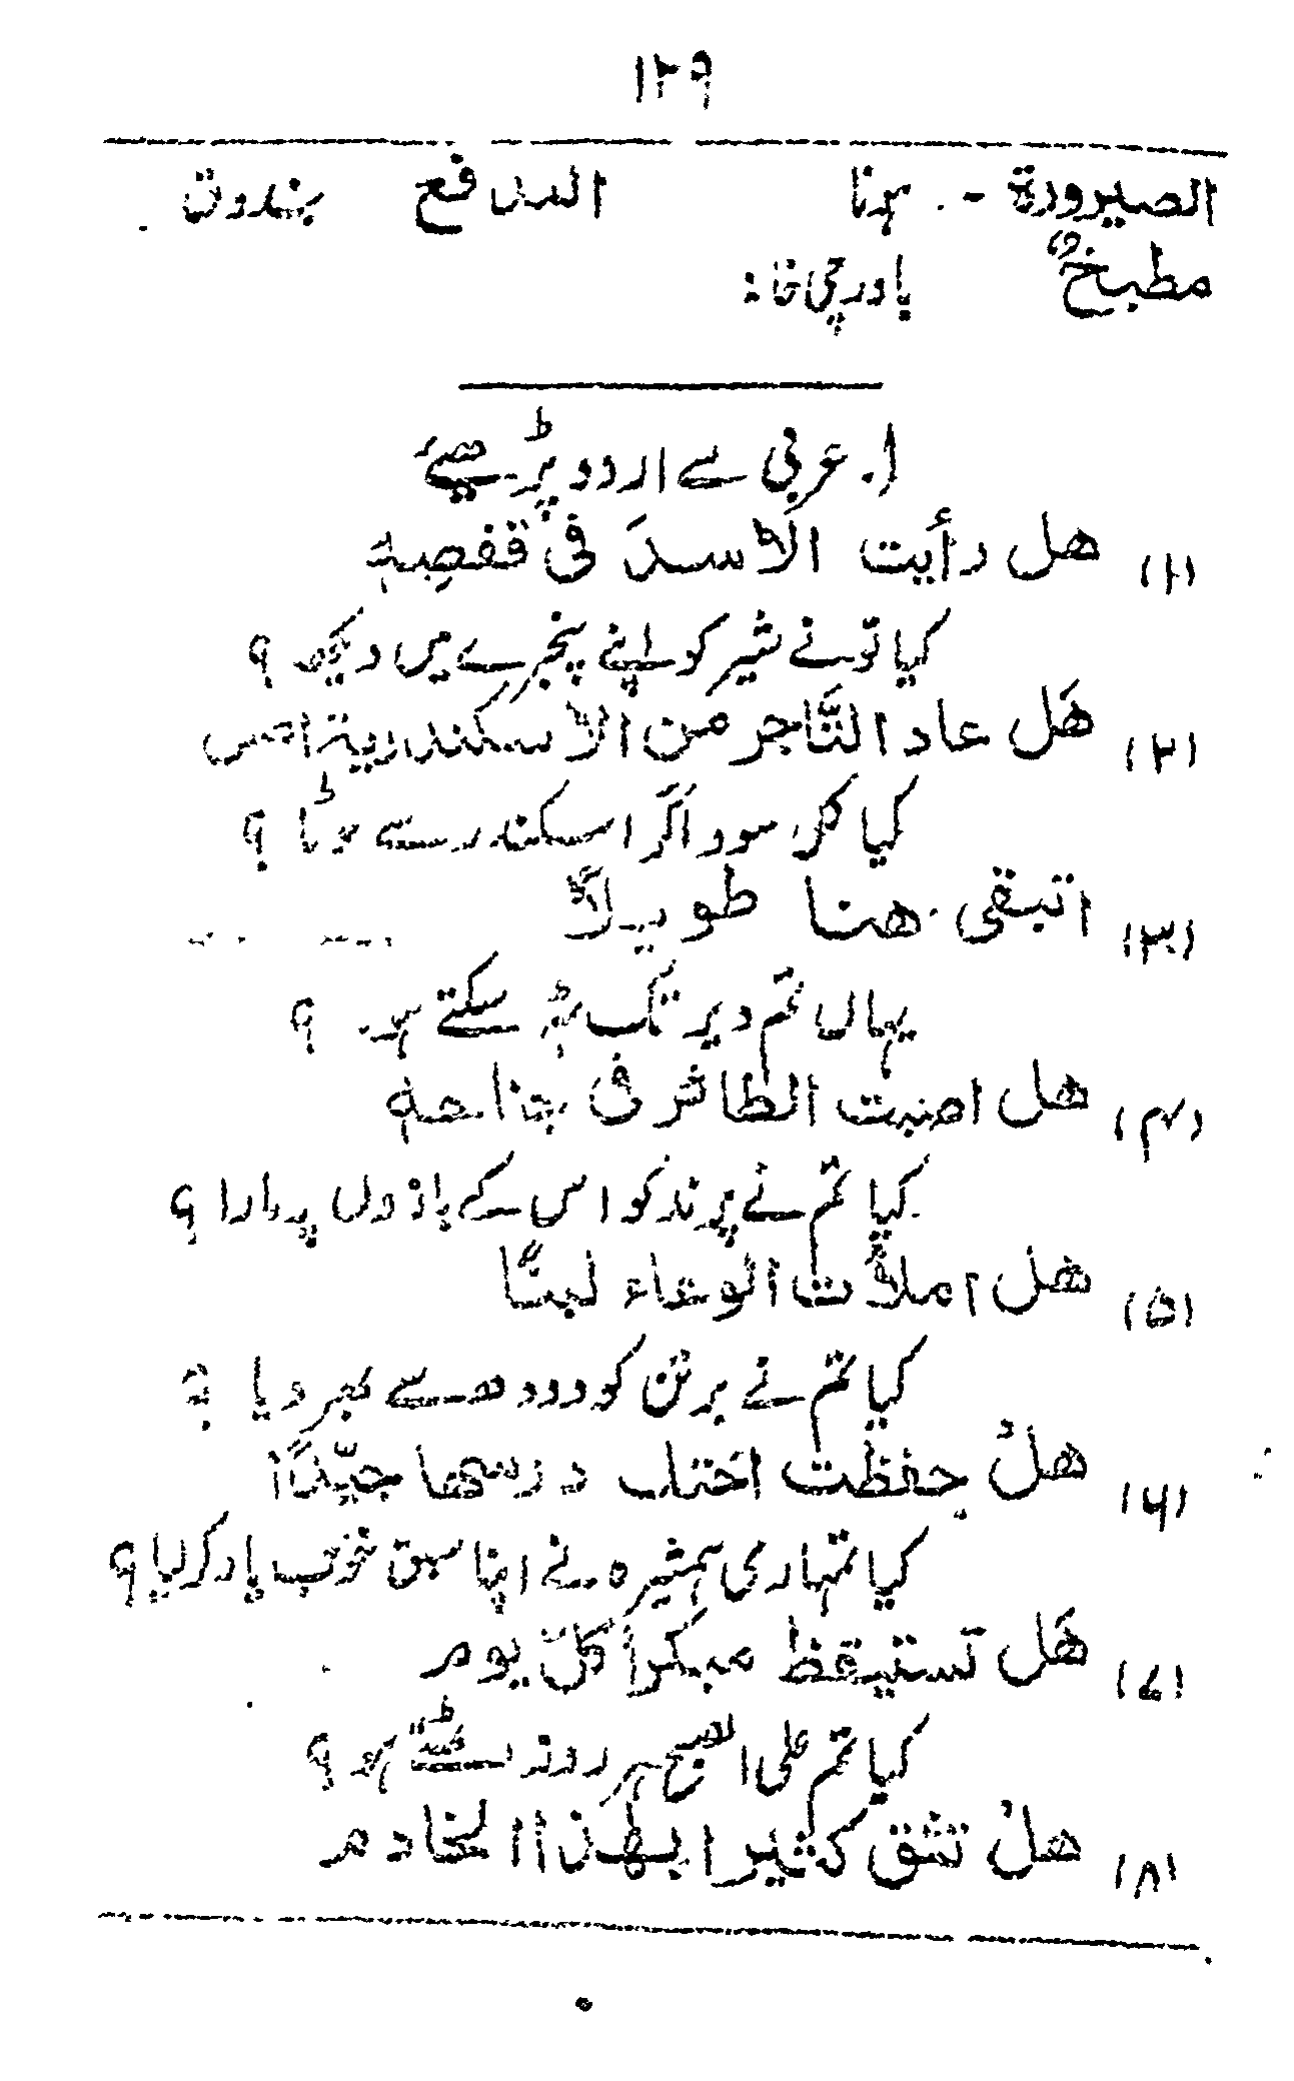 ۱۲۹
الصیرورۃ - ہونا المدافع بندوق
مطبخٌ باورچی خانہ
۱. عربی سے اردو پڑھیئے
(۱) ھل رأیت الاسدَ فی قفصِہٖ
کیا تو نے شیر کو اپنے پنجرے میں دیکھا ؟
(۲) ھَل عاد التَّاجر من الاسکندریۃ امس
کیا کل سوداگر اسکندر سے لوٹا ؟
(۳) اتبقی ھنا طویلاً
یہاں تم دیر تک ٹہر سکتے ہو ؟
(۴) ھل اصبت الطائر فی جناحہ
کیا تم نے پرند کو اس کے بازوں پر مارا ؟
(۵) ھل املأت الوعاء لبنًا
کیا تم نے برتن کو دودھ سے بھر دیا ؟
(۶) ھلْ حفظت اختک درسھا جیّدًا
کیا تمہاری ہمشیرہ نے اپنا سبق خوب یاد کر لیا ؟
(۷) ھَل تستیقظ مبکراً کلّ یوم
کیا تم علی الصبح ہر روز اٹھتے ہو ؟
(۸) ھلْ تثق کثیرا بھذا الخادم